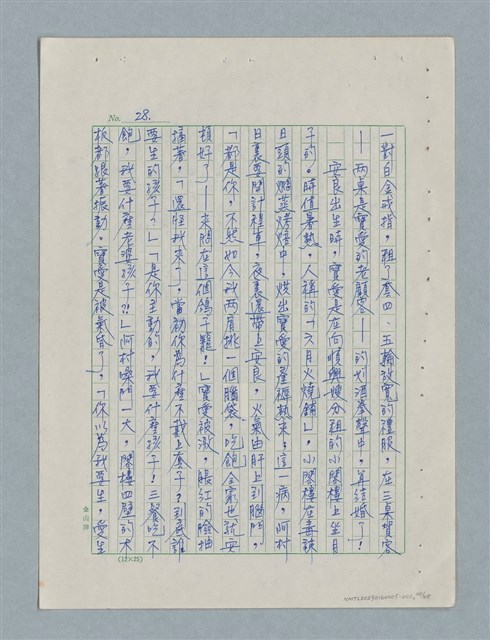 No. 28.
一對白金戒指，租了套四、五輪放寬的禮服，在三桌賀客
——兩桌是寶愛的老顧客——的划酒拳聲中，算結婚了！
安良出生時，寶愛是在向順興嫂分租的小閣樓上坐月
子的。時值暑熱，人稱的「六月火燒鋪」，小閣樓在毒辣
日頭的燃蒸烤焙中，烘出寶愛的產褥熱來；這一病，阿村
日裏要開計程車，夜裏裏帶上安良，火氣由肝上到腦門，
「都是你，不然如今我兩肩挑一個腦袋，吃飽全家也就安
頓好了！——來悶在這個鴿子籠！」寶愛被激，脹紅的臉抽
搐著，「還怪我來了，當初你為什麼不戴上套子？到底誰
要生的孩子？」「是你主動的，我要什麼孩子！三餐吃不
飽，我要什麼老婆孩子?!」阿村嗓門一大，閣樓四壁的木
板都跟著振動。寶愛是被氣昏了，「你以為我要生，愛生
金山牌
(12×25)